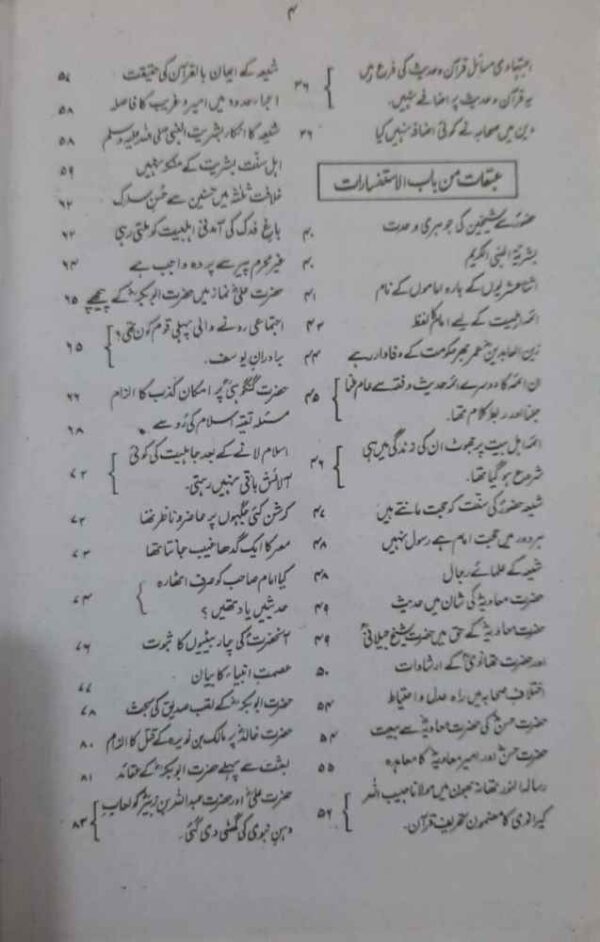 ۴
اجتہادی مسائل قرآن و حدیث کی فرع ہیں
یہ قرآن و حدیث پر اضافے نہیں. ۳۶
دین میں صحابہ نے کوئی اضافہ نہیں کیا ۳۶
عبقات من باب الاستفسارات
حضورؐ سے شیخین کی جوہری وحدت ۴۰
بشریۃ النبی الکریم ۴۰
اثنا عشریوں کے بارہ اماموں کے نام ۴۱
ائمہ اہلبیت کے لیے امام کا لفظ ۴۳
زین العابدین عمر بھر حکومت کے وفادار رہے ۴۴
ان ائمہ کا دوسرے ائمہ حدیث و فقہ سے عام ملنا
جلنا اور ربط کلام تھا. ۴۵
ائمہ اہل بیت پر جھوٹ ان کی زندگی میں ہی
شروع ہو گیا تھا. ۴۶
شیعہ حضورؐ کی سنت کو حجت مانتے ہیں ۴۷
ہر دور میں حجت امام ہے رسول نہیں ۴۸
شیعہ کے علمائے رجال ۴۸
حضرت معاویہؓ کی شان میں حدیث ۴۹
حضرت معاویہؓ کے حق میں حضرت شیخ جیلانیؒ ۴۹
اور حضرت تھانویؒ کے ارشادات
اختلاف صحابہ میں راہ عدل و احتیاط ۵۰
حضرت حسنؓ کی حضرت معاویہؓ سے بیعت ۵۴
حضرت حسنؓ اور امیر معاویہؓ کا معاہدہ ۵۴
۵۵
رسالہ النور تھانہ بھون میں مولانا حبیب احمد
کیرانوی کا مضمون تحریف قرآن. ۵۶
شیعہ کے ایمان بالقرآن کی حقیقت ۵۷
اجراء حدود میں امیر و غریب کا فاصلہ ۵۸
شیعہ کا انکار بشریت النبی صلی اللہ علیہ وسلم ۵۸
اہل سنت بشریت کے منکر نہیں ۵۹
خلافت ثلثہ میں حسنین سے حسن سلوک ۶۲
باغ فدک کی آمدنی اہلبیت کو ملتی رہی ۶۲
غیر محرم پیر سے پردہ واجب ہے ۶۴
حضرت علیؓ نماز میں حضرت ابوبکرؓ کے پیچھے ۶۵
اجتماعی رونے والی پہلی قوم کون تھی؟
برادران یوسف. ۶۵
حضرت گنگوہیؒ پر امکان کذب کا الزام ۶۶
مسئلہ تقیہ اسلام کی رُو سے ۶۸
اسلام لانے کے بعد جاہلیت کی کوئی
آلائش باقی نہیں رہتی. ۷۲
کرشن کئی جگہوں پر حاضر و ناظر تھا ۷۲
مصر کا ایک گدھا غیب جانتا تھا ۷۳
کیا امام صاحب کو صرف اٹھارہ
حدیثیں یاد تھیں؟ ۷۴
آنحضرتؐ کی چار بیٹیوں کا ثبوت ۷۶
عصمت انبیاء کا بیان ۷۷
حضرت ابوبکرؓ کے لقب صدیق کی بحث ۷۸
حضرت خالدؓ پر مالک بن نویرہ کے قتل کا الزام ۸۰
بعثت سے پہلے حضرت ابوبکرؓ کے عقائد ۸۱
حضرت علیؓ اور حضرت عبداللہ بن زبیرؓ کو لعاب
دہن نبوی کی گھٹی دی گئی. ۸۳